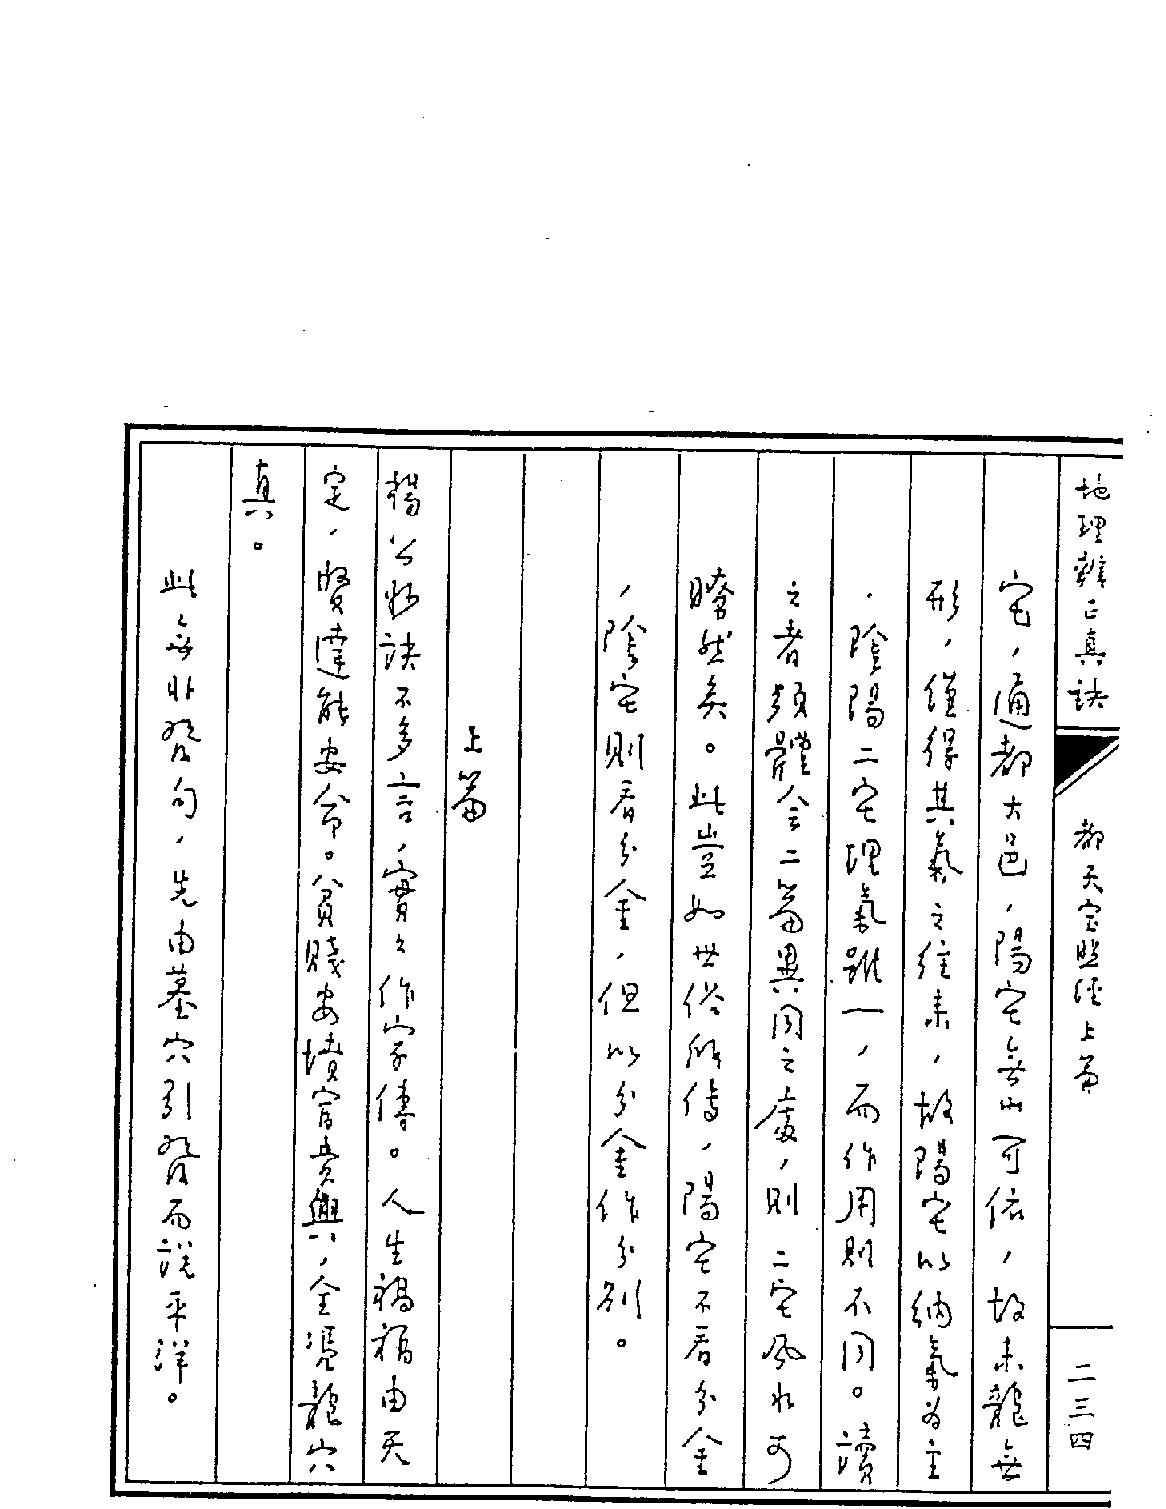 地理辨正真訣
都天宝照經上篇
二三四
宅，通都大邑，陽宅無山可依，故来龍無
形，僅得其氣之往来，故陽宅以納氣為主
，陰陽二宅理氣雖一，而作用則不同。讀
之者須體会二篇異同之處，則二宅风水可
瞭然矣。此豈如世俗所傳，陽宅不看分金
，陰宅則看分金，但以分金作分别。
上篇
楊公妙訣不多言，實々作家傳。人生禍福由天
定，賢達能安命。貧賤安墳富貴興，全憑龍穴
真。
此無非發句，先由墓穴引發而說平洋。